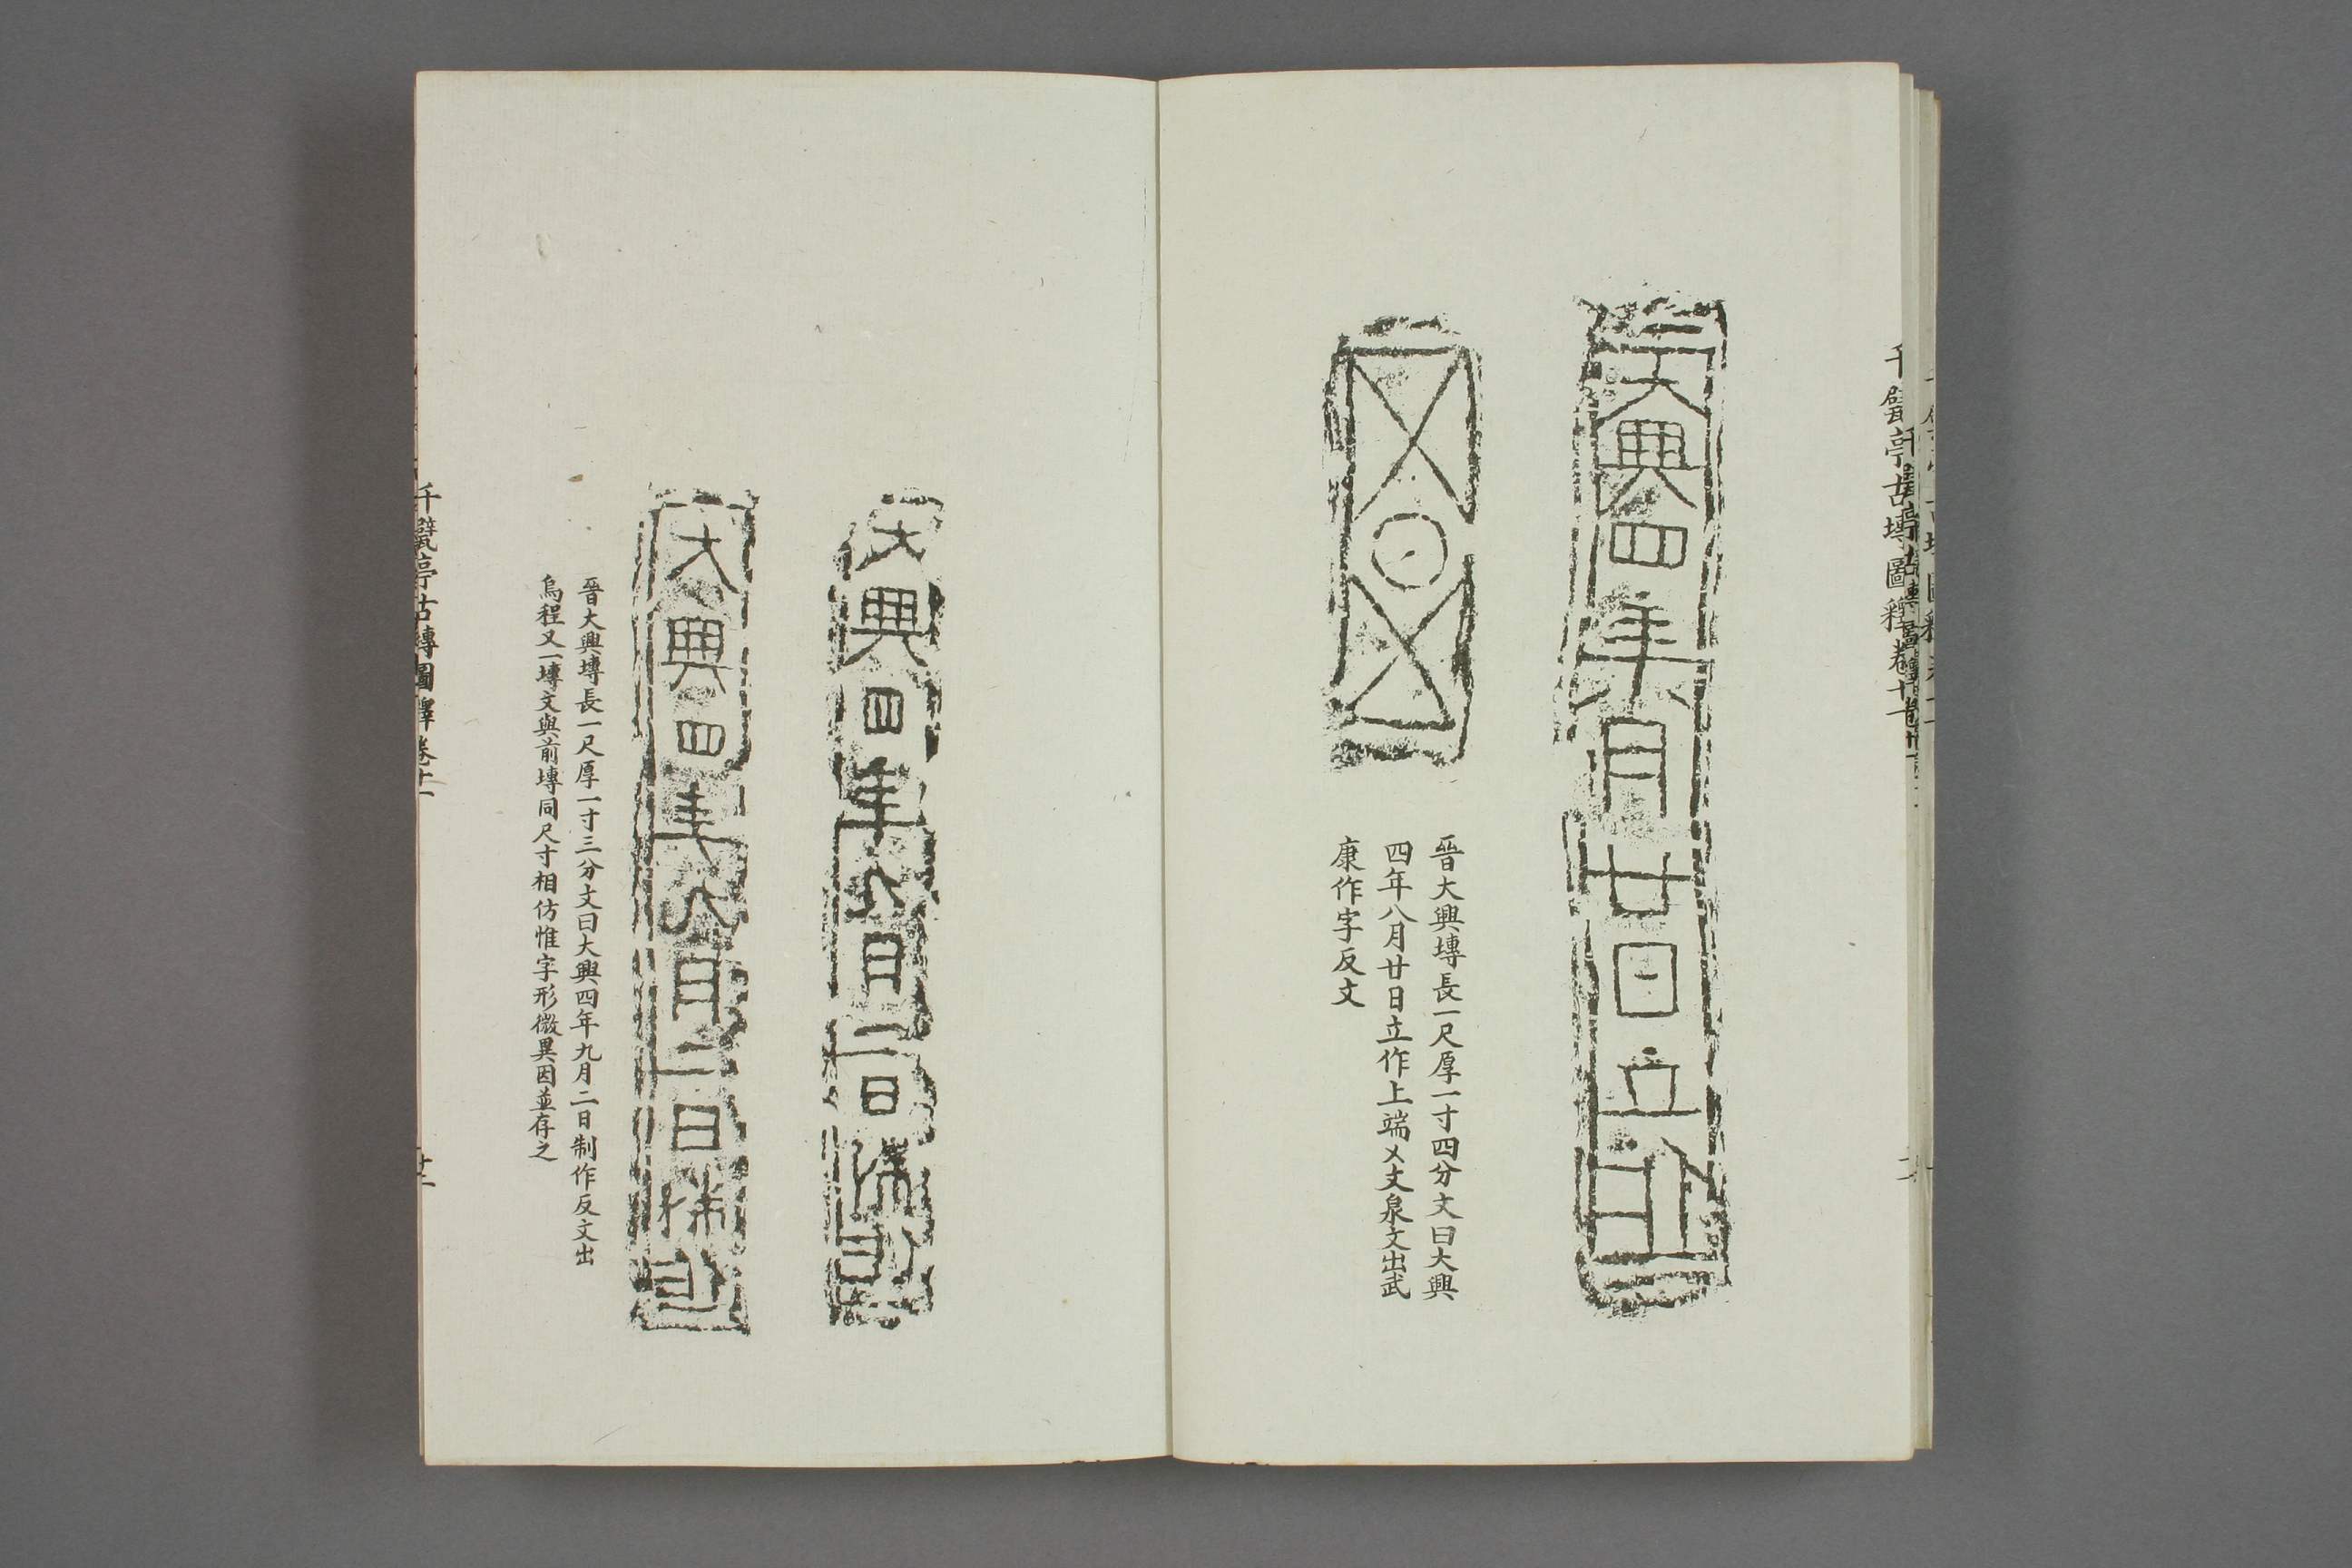 千甓亭古塼圖釋卷十一
大興四年八月廿日立作
晉大興塼長一尺厚一寸四分文曰大興
四年八月廿日立作上端乂文泉文出武
康作字反文
大興四年九月二日制作
大興四年九月二日制作
晉大興塼長一尺厚一寸三分文曰大興四年九月二日制作反文出
烏程又一塼文與前塼同尺寸相仿惟字形微異因並存之
千甓亭古塼圖釋卷十一